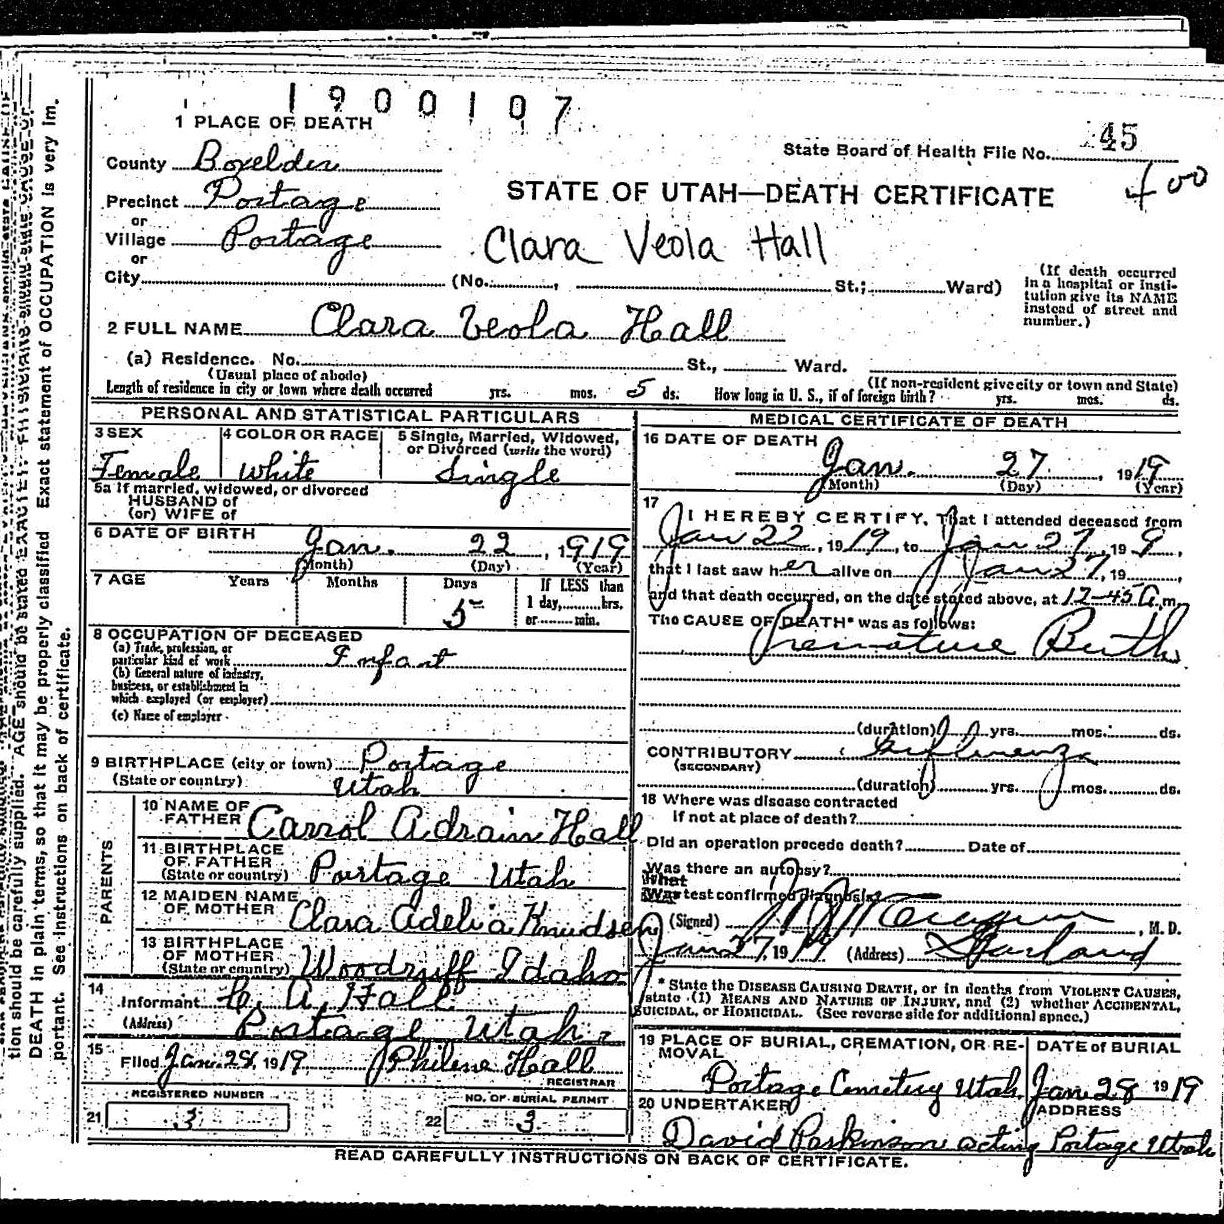 1900107
1 PLACE OF DEATH
45
State Board of Health File No.
400
County Boxelder
STATE OF UTAH—DEATH CERTIFICATE
Precinct Portage
or
Village Portage
Clara Veola Hall
or
City (No. , St.; Ward)
(If death occurred in a hospital or institution give its NAME instead of street and number.)
2 FULL NAME Clara Veola Hall
(a) Residence. No. St., Ward.
(Usual place of abode) (If non-resident give city or town and State)
Length of residence in city or town where death occurred yrs. mos. 5 ds. How long in U. S., if of foreign birth? yrs. mos. ds.
PERSONAL AND STATISTICAL PARTICULARS
3 SEX 4 COLOR OR RACE 5 Single, Married, Widowed, or Divorced (write the word)
Female White Single
5a If married, widowed, or divorced
HUSBAND of
(or) WIFE of
6 DATE OF BIRTH Jan. 22, 1919
(Month) (Day) (Year)
7 AGE Years Months Days If LESS than
5 1 day, hrs.
or min.
8 OCCUPATION OF DECEASED
(a) Trade, profession, or
particular kind of work Infant
(b) General nature of industry,
business, or establishment in
which employed (or employer)
(c) Name of employer
9 BIRTHPLACE (city or town) Portage
(State or country) Utah
PARENTS
10 NAME OF FATHER Carrol Adrain Hall
11 BIRTHPLACE OF FATHER (State or country) Portage Utah
12 MAIDEN NAME OF MOTHER Clara Adelia Knudsen
13 BIRTHPLACE OF MOTHER (State or country) Woodruff Idaho
14 Informant C. A. Hall
(Address) Portage Utah
15 Filed Jan. 28, 1919 J Philene Hall
REGISTRAR
REGISTERED NUMBER NO. OF BURIAL PERMIT
21 3 22 3
MEDICAL CERTIFICATE OF DEATH
16 DATE OF DEATH
Jan. 27, 1919
(Month) (Day) (Year)
17 I HEREBY CERTIFY, That I attended deceased from
Jan 22, 1919, to Jan 27, 199,
that I last saw her alive on Jan 27, 19 ,
and that death occurred, on the date stated above, at 12-45 a m.
The CAUSE OF DEATH* was as follows:
Premature Birth
(duration) yrs. mos. ds.
CONTRIBUTORY Influenza
(SECONDARY)
(duration) yrs. mos. ds.
18 Where was disease contracted
if not at place of death?
Did an operation precede death? Date of
Was there an autopsy?
What test confirmed diagnosis?
(Signed) , M. D.
Jan 27, 1919 (Address) Garland
* State the DISEASE CAUSING DEATH, or in deaths from VIOLENT CAUSES,
state (1) MEANS AND NATURE OF INJURY, and (2) whether ACCIDENTAL,
SUICIDAL, or HOMICIDAL. (See reverse side for additional space.)
19 PLACE OF BURIAL, CREMATION, OR REMOVAL DATE of BURIAL
Portage Cemetery Utah Jan 28 1919
20 UNDERTAKER ADDRESS
David Parkinson acting Portage Utah
READ CAREFULLY INSTRUCTIONS ON BACK OF CERTIFICATE.
tion should be carefully supplied. AGE should be stated EXACTLY. PHYSICIANS should state CAUSE OF
DEATH in plain terms, so that it may be properly classified. Exact statement of OCCUPATION is very im-
portant. See instructions on back of certificate.